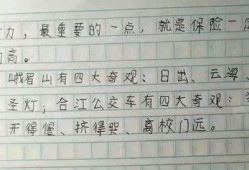 力，最重要的一点，就是保险一
高。
峨眉山有四大奇观：日出、云海
圣灯；合江公交车有四大奇观：
开得慢、挤得哭、离校门远。